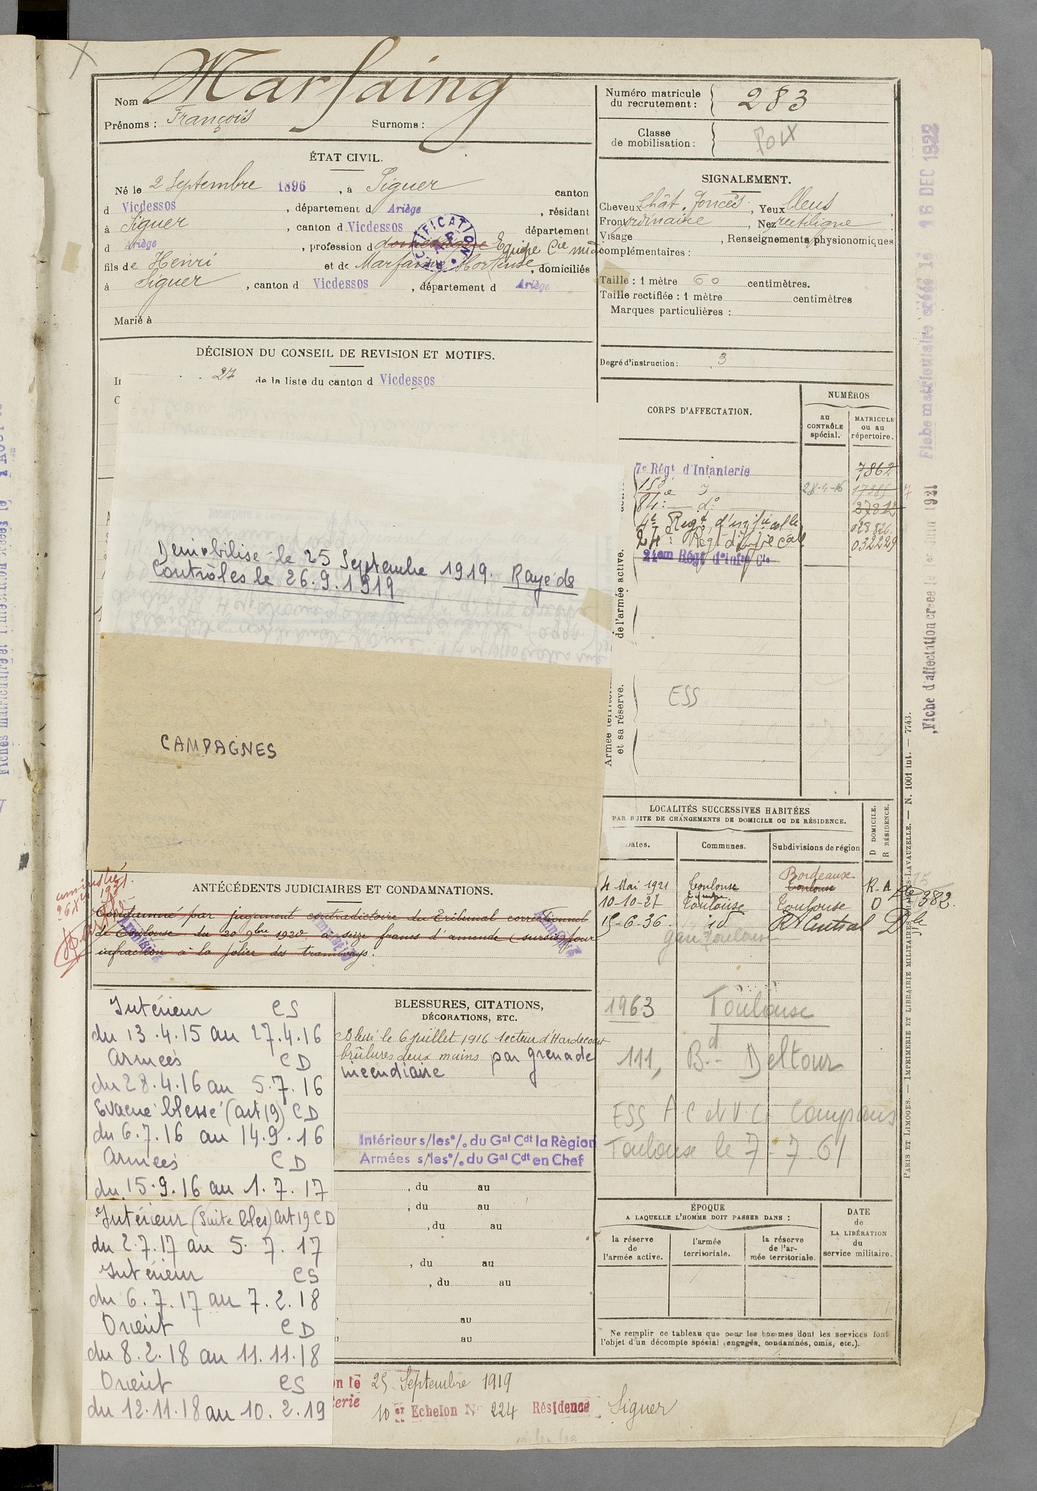 Nom Marfaing
Prénoms : François Surnoms :
Numéro matricule
du recrutement : 283
Classe
de mobilisation :
ÉTAT CIVIL.
Né le 2 Septembre 1896, à Siguer canton
d Vicdessos, département d Ariège, résidant
à Siguer, canton d Vicdessos département
d Ariège, profession d
fils de Henri et de Marfaing Hortense, domiciliés
à Siguer, canton d Vicdessos, département d Ariège
Marié à
SIGNALEMENT.
Cheveux Chât. foncés, Yeux bleus
Front ordinaire, Nez rectiligne
Visage, Renseignements physionomiques
complémentaires :
Taille : 1 mètre 60 centimètres.
Taille rectifiée : 1 mètre centimètres
Marques particulières :
Degré d'instruction : 3
DÉCISION DU CONSEIL DE REVISION ET MOTIFS.
27 de la liste du canton d Vicdessos
Démobilisé le 25 Septembre 1919. Rayé des
Contrôles le 26.9.1919
CAMPAGNES
CORPS D'AFFECTATION.
NUMÉROS
au
CONTRÔLE
spécial.
MATRICULE
ou au
répertoire.
7e Régt d'Infanterie 7862
153e d° 28-4-16
84e d°
4e Régt d'infie colle
24e Régt d'infie cale 032229
21em Régt d'Infie Cle
de l'armée active.
Armée territoriale
et sa réserve.
ESS
LOCALITÉS SUCCESSIVES HABITÉES
PAR SUITE DE CHANGEMENTS DE DOMICILE OU DE RÉSIDENCE.
Dates. Communes. Subdivisions de région
D DOMICILE.
R RÉSIDENCE.
Bordeaux
4 Mai 1921 Toulouse Toulouse R.A
10-10-27 Toulouse Toulouse D 382.
15-6-36. id R^t Central
1963 Toulouse
111, Bd Deltour
ESS A C et V G Compans
Toulouse le 7-7-61
ANTÉCÉDENTS JUDICIAIRES ET CONDAMNATIONS.
Condamné par jugement contradictoire du Tribunal correctionnel
de Toulouse du 20 9bre 1920, à seize francs d'amende (sursis) pour
infraction à la police des tramways.
Intérieur CS
du 13.4.15 au 27.4.16
Armées CD
du 28.4.16 au 5.7.16
Evacué blessé (art 19) CD
du 6.7.16 au 14.9.16
Armées CD
du 15.9.16 au 1.7.17
Intérieur (Suite bles) art 19 CD
du 2.7.17 au 5.7.17
Intérieur CS
du 6.7.17 au 7.2.18
Orient CD
du 8.2.18 au 11.11.18
Orient CS
du 12.11.18 au 10.2.19
BLESSURES, CITATIONS,
DÉCORATIONS, ETC.
Blessé le 6 juillet 1916 secteur d'Hardecourt
brûlures deux mains par grenade
incendiaire
Intérieur s/les °/. du Gal Cdt la Région
Armées s/les °/. du Gal Cdt en Chef
, du au
, du au
, du au
, du au
, du au
au
au
ÉPOQUE
A LAQUELLE L'HOMME DOIT PASSER DANS :
la réserve
de
l'armée active.
l'armée
territoriale.
la réserve
de l'ar-
mée territoriale.
DATE
de
LA LIBÉRATION
du
service militaire.
Ne remplir ce tableau que pour les hommes dont les services font
l'objet d'un décompte spécial (engagés, condamnés, omis, etc.).
25 Septembre 1919
10 Echelon N° 224 Résidence Siguer
Fiche matriculaire créée le 16 DEC 1922
Fiche d'affectation créée le 1921
PARIS ET LIMOGES. — IMPRIMERIE ET LIBRAIRIE MILITAIRES LAVAUZELLE. — N. 1001 int. — 7743.